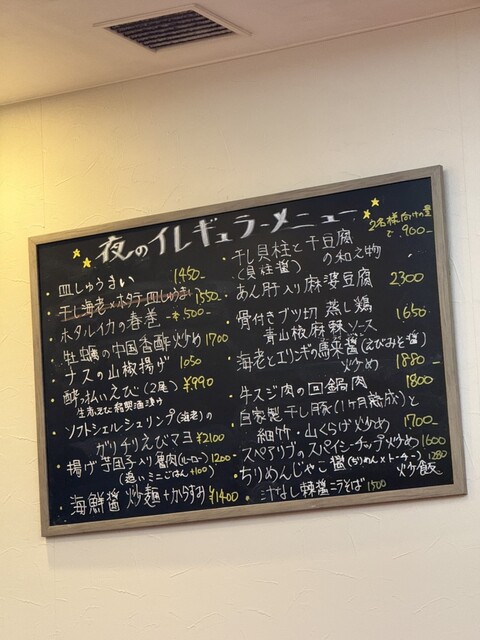 夜のイレギュラーメニュー
2名様向けの量
で 900-
・皿しゅうまい 1,450-
・干し海老×ホタテ皿しゅうまい 1550-
・ホタルイカの春巻 500-
・牡蠣の中国香酢炒め 1700
・ナスの山椒揚げ 1050
・酔っ払いえび(2尾) ¥990
生春えび紹興酒漬け
・ソフトシェルシュリンプ(海老)の
ガリチリえびマヨ ¥2100
・揚げ芋団子入り魯肉(ルーロー) 1200-
(追いミニごはん+100)
・海鮮醤 炒麺+からすみ ¥1400
・干し貝柱と干豆腐
(貝柱醤) の和え物
・あん肝入り麻婆豆腐 2300
・骨付きブツ切 蒸し鶏 1650
青山椒麻辣ソース
・海老とエリンギの馬来醤(えびみそ醤)
炒め 1880-
・牛スジ肉の回鍋肉 1800
・自家製干し豚(1ヶ月熟成)と
細竹・山くらげ炒め 1700-
・スペアリブのスパイシーチップ炒め 1600
・ちりめんじゃこ醤(ちりめん×トーチー) 1280
炒飯
・汁なし辣醤ニラそば 1500